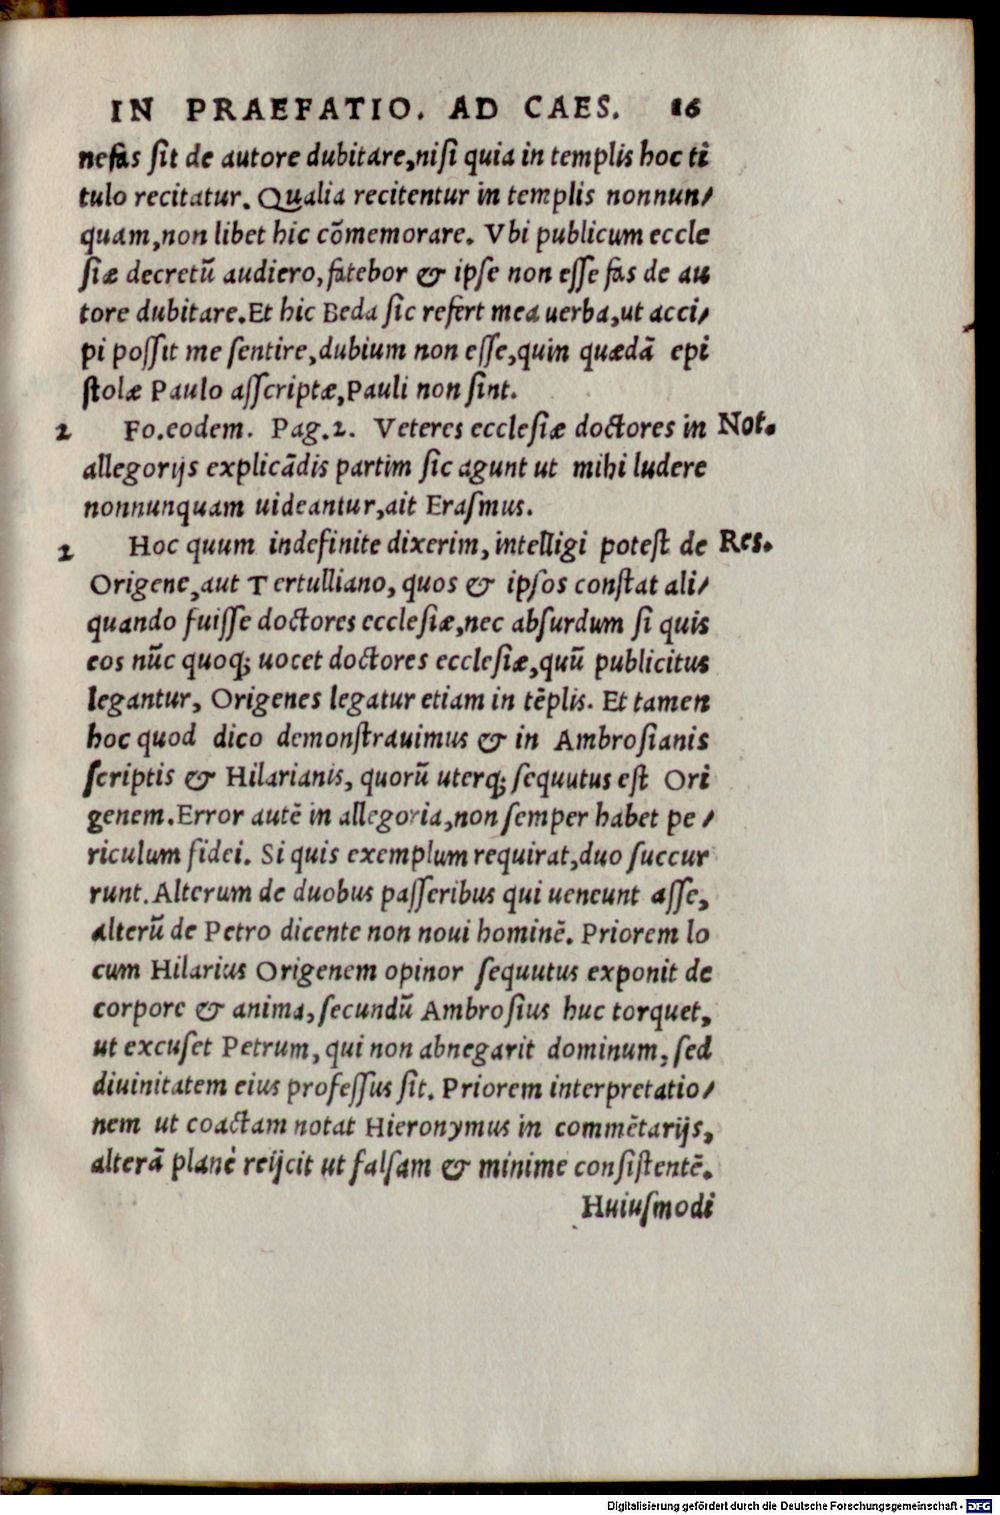 IN PRAEFATIO. AD CAES. 16
nefas ſit de autore dubitare,niſi quia in templis hoc ti
tulo recitatur. Qualia recitentur in templis nonnun/
quam,non libet hic cõmemorare. Vbi publicum eccle
ſiæ decretũ audiero,fatebor & ipſe non eſſe fas de au
tore dubitare.Et hic Beda ſic refert mea uerba,ut acci/
pi poſſit me ſentire,dubium non eſſe,quin quædã epi
ſtolæ Paulo aſſcriptæ,Pauli non ſint.
2 Fo.eodem. Pag.2. Veteres eccleſiæ doctores in Not.
allegorijs explicãdis partim ſic agunt ut mihi ludere
nonnunquam uideantur,ait Eraſmus.
2 Hoc quum indefinite dixerim, intelligi poteſt de Res.
Origene,aut Tertulliano, quos & ipſos conſtat ali/
quando fuiſſe doctores eccleſiæ,nec abſurdum ſi quis
eos nũc quoq; uocet doctores eccleſiæ,quũ publicitus
legantur, Origenes legatur etiam in tẽplis. Et tamen
hoc quod dico demonſtrauimus & in Ambroſianis
ſcriptis & Hilarianis, quorũ uterq; ſequutus eſt Ori
genem.Error autẽ in allegoria,non ſemper habet pe/
riculum fidei. Si quis exemplum requirat,duo ſuccur
runt.Alterum de duobus paſſeribus qui ueneunt aſſe,
alterũ de Petro dicente non noui hominẽ. Priorem lo
cum Hilarius Origenem opinor ſequutus exponit de
corpore & anima,ſecundũ Ambroſius huc torquet,
ut excuſet Petrum, qui non abnegarit dominum, ſed
diuinitatem eius profeſſus ſit. Priorem interpretatio/
nem ut coactam notat Hieronymus in commẽtarijs,
alterã planè reijcit ut falſam & minime conſiſtentẽ.
Huiuſmodi
Digitalisierung gefördert durch die Deutsche Forschungsgemeinschaft - DFG